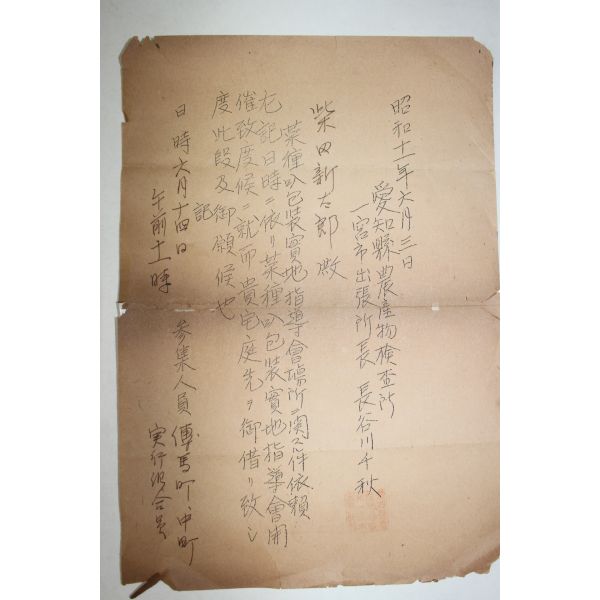 昭和十一年六月三日
愛知縣農産物検査所
一宮市出張所長 長谷川千秋
柴田新太郎 殿
菜種叺包装實地指導會場所ニ関スル件依頼
左記日時ニ依リ菜種叺包装實地指導會開
催致度候ニ就而貴宅庭先ヲ御借リ致シ
度此段及御願候也
記
日時六月十四日
午前十一時
参集人員 傳馬町、中町
実行組合員